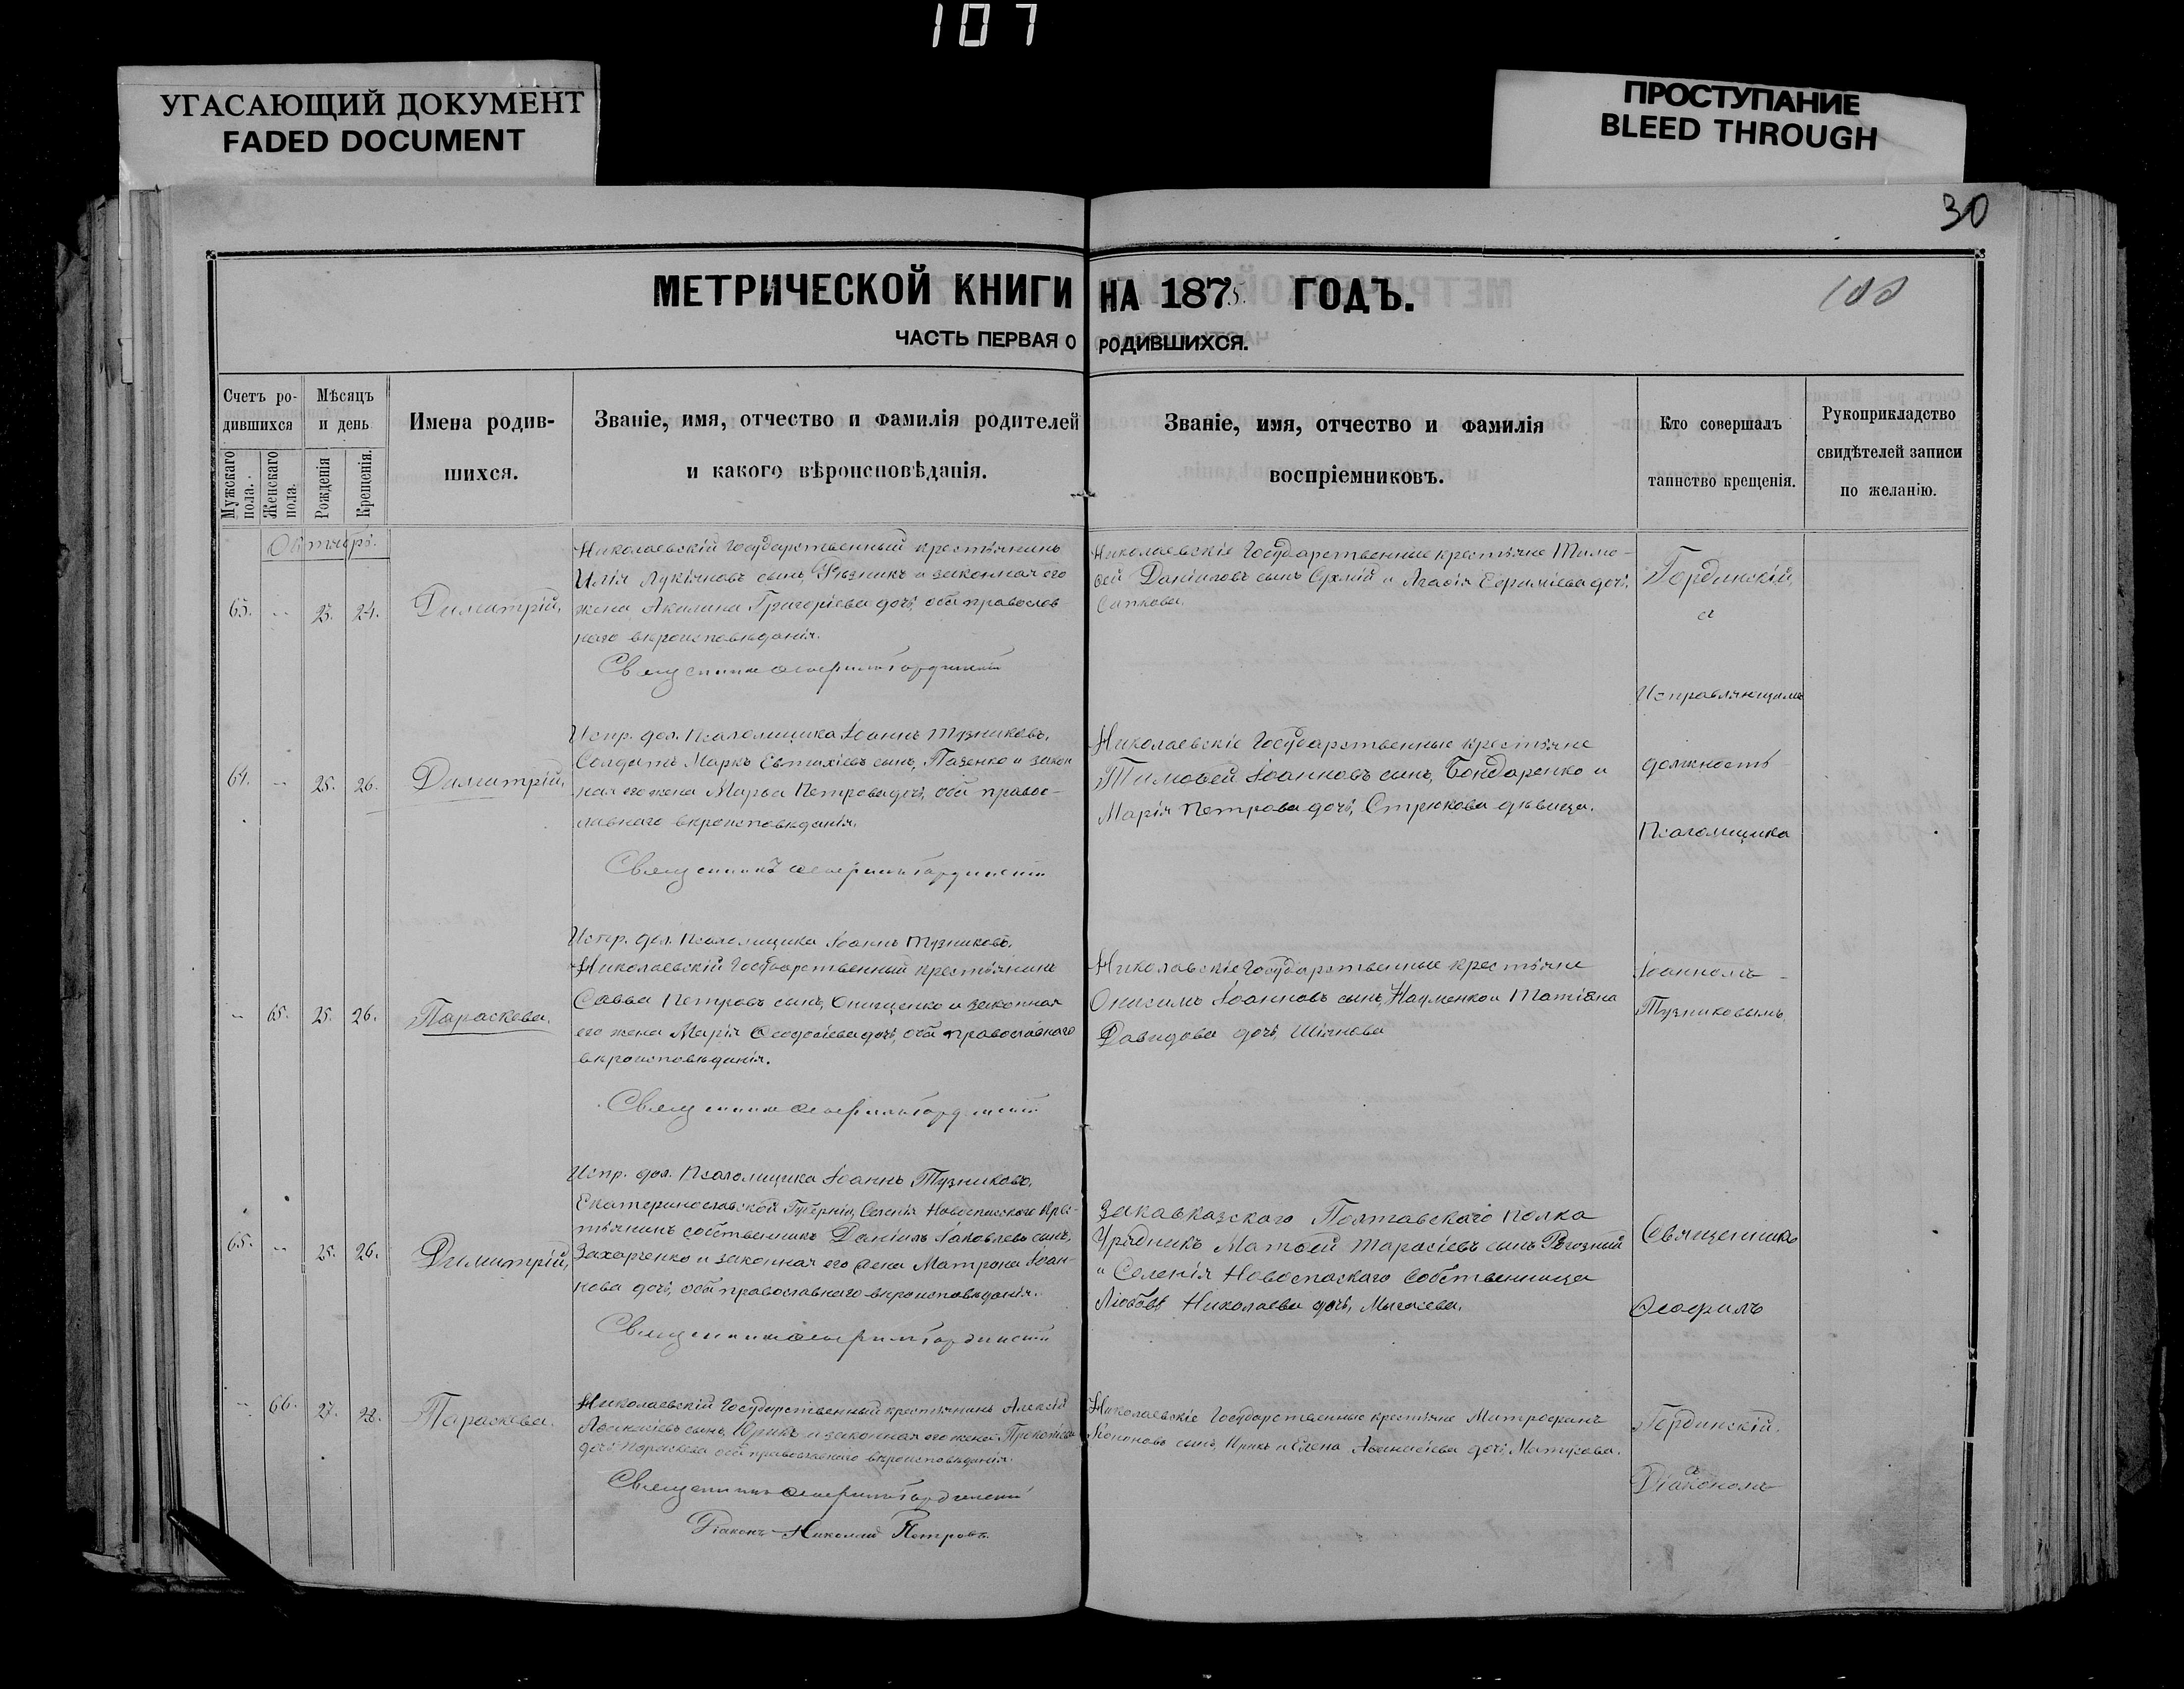 107
УГАСАЮЩИЙ ДОКУМЕНТ
FADED DOCUMENT
ПРОСТУПАНИЕ
BLEED THROUGH
30
МЕТРИЧЕСКОЙ КНИГИ НА 1875 ГОДЪ.
ЧАСТЬ ПЕРВАЯ О РОДИВШИХСЯ.
Счетъ ро-
дившихся
Мужскаго
пола.
Женскаго
пола.
Мѣсяцъ
и день
Рожденія
Крещенія.
Имена родив-
шихся.
Званіе, имя, отчество и фамилія родителей
и какого вѣроисповѣданія.
Званіе, имя, отчество и фамилія
воспріемниковъ.
Кто совершалъ
таинство крещенія.
Рукоприкладство
свидѣтелей записи
по желанію.
Октябрь.
63. 23. 24. Димитрій,
Николаевскій Государственный крестьянинъ
Илія Лукіановъ сынъ, Рѣзникъ и законная его
жена Акилина Григоріева дочь, оба православ
наго вѣроисповѣданія.
Священникъ Ѳеофилъ Гординскій
Испр. дол. Псаломщика Іоаннъ Тузниковъ.
Николаевскіе Государственные крестьяне Тимо-
ѳей Даніиловъ сынъ и Агаѳія дочь,
Гординскій,
и
Исправляющимъ
64. 25. 26. Димитрій,
Солдатъ Маркъ Евтихіевъ сынъ, Пазенко и закон
ная его жена Марѳа Петрова дочь, оба правос-
лавнаго вѣроисповѣданія.
Священникъ Ѳеофилъ Гординскій
Испр. дол. Псаломщика Іоаннъ Тузниковъ.
Николаевскіе Государственные крестьяне
Тимоѳей Іоанновъ сынъ, Бондаренко и
Марія Петрова дочь, Стрюкова дѣвица.
должность
Псаломщика
65. 25. 26. Параскева.
Николаевскій Государственный крестьянинъ
Савва Петровъ сынъ, Онищенко и законная
его жена Марія Ѳеодосіева дочь, оба православнаго
вѣроисповѣданія.
Священникъ Ѳеофилъ Гординскій
Испр. дол. Псаломщика Іоаннъ Тузниковъ.
Николавскіе Государственные крестьяне
Онисимъ Іоанновъ сынъ, Науменко и Татіана
Давидова дочь, Шіянова
Іоанномъ
Тузниковымъ,
65. 25. 26. Димитрій,
Екатеринославской Губерніи, Селенія Новоспасскаго крес-
тьянинъ собственникъ Даніилъ Іаковлевъ сынъ,
Захарченко и законная его жена Матрона Іоан-
нова дочь, оба православнаго вѣроисповѣданія.
Священникъ Ѳеофилъ Гординскій
Закавказскаго Полтавскаго полка
Урядникъ Матѳей Тарасіевъ сынъ Рогозный
и Селенія Новоспаскаго собственница
Любовь Николаева дочь,
Священникъ
Ѳеофилъ
66. 27. 28. Параскева.
Николаевскій Государственный крестьянинъ Алексій
Аѳанасіевъ сынъ, Юрикъ и законная его жена Прокопіева
дочь Параскева оба православнаго вѣроисповѣданія.
Священникъ Ѳеофилъ Гординскій
Діаконъ Николай Петровъ.
Николаевскіе Государственные крестьяне Митрофанъ
сынъ, и Елена Аѳанасіева дочь,
Гординскій.
съ
Діакономъ